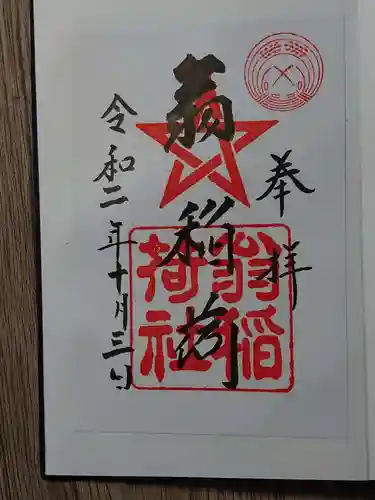 奉拝
翁稲荷
令和二年十月三日
翁稲
荷社